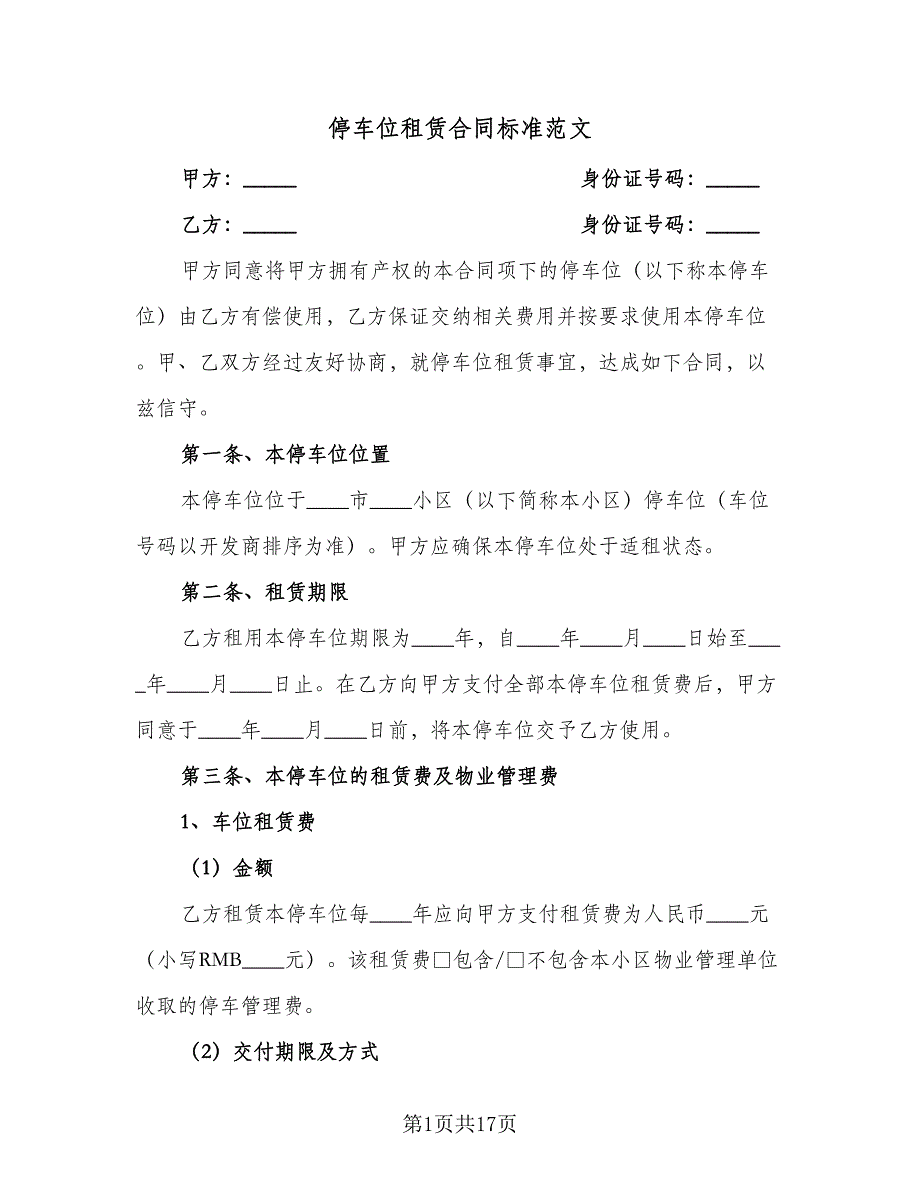 停车位租赁合同标准范文
甲方：_____ 身份证号码：_____
乙方：_____ 身份证号码：_____
甲方同意将甲方拥有产权的本合同项下的停车位（以下称本停车
位）由乙方有偿使用，乙方保证交纳相关费用并按要求使用本停车位
。甲、乙双方经过友好协商，就停车位租赁事宜，达成如下合同，以
兹信守。
第一条、本停车位位置
本停车位位于____市____小区（以下简称本小区）停车位（车位
号码以开发商排序为准）。甲方应确保本停车位处于适租状态。
第二条、租赁期限
乙方租用本停车位期限为____年，自____年____月____日始至___
_年____月____日止。在乙方向甲方支付全部本停车位租赁费后，甲方
同意于____年____月____日前，将本停车位交予乙方使用。
第三条、本停车位的租赁费及物业管理费
1、车位租赁费
（1）金额
乙方租赁本停车位每____年应向甲方支付租赁费为人民币____元
（小写RMB____元）。该租赁费□包含/□不包含本小区物业管理单位
收取的停车管理费。
（2）交付期限及方式
第1页共17页